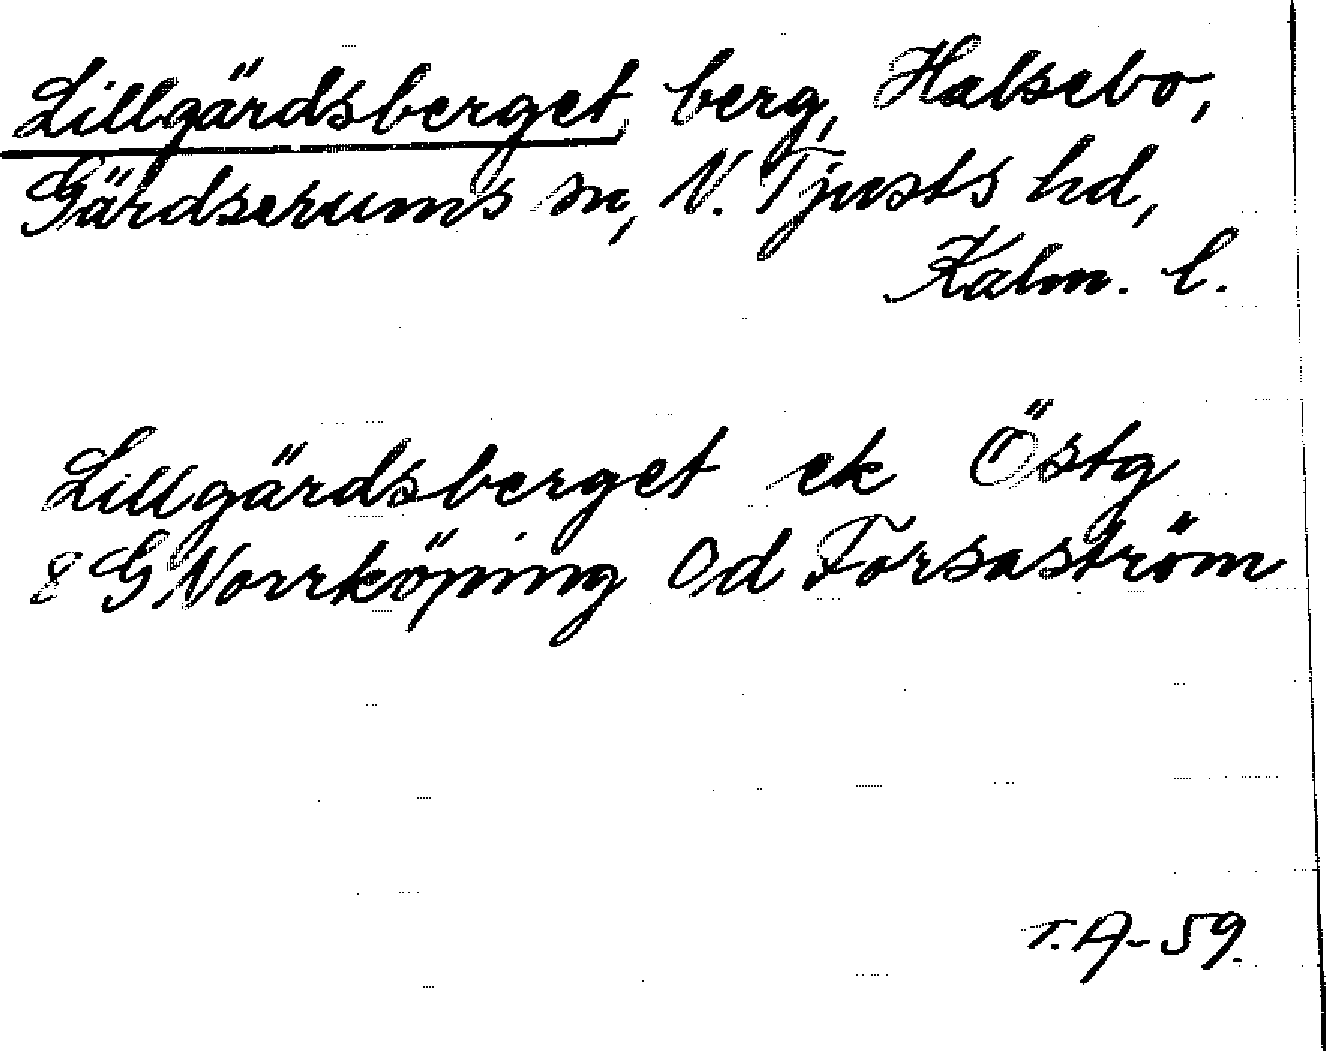 Lillgärdsberget, berg, Halsebo,
Gärdserums sn, N. Tjusts hd,
Kalm. l.
Lillgärdsberget ek Östg
8G Norrköping Od Forsaström
T.A-59.